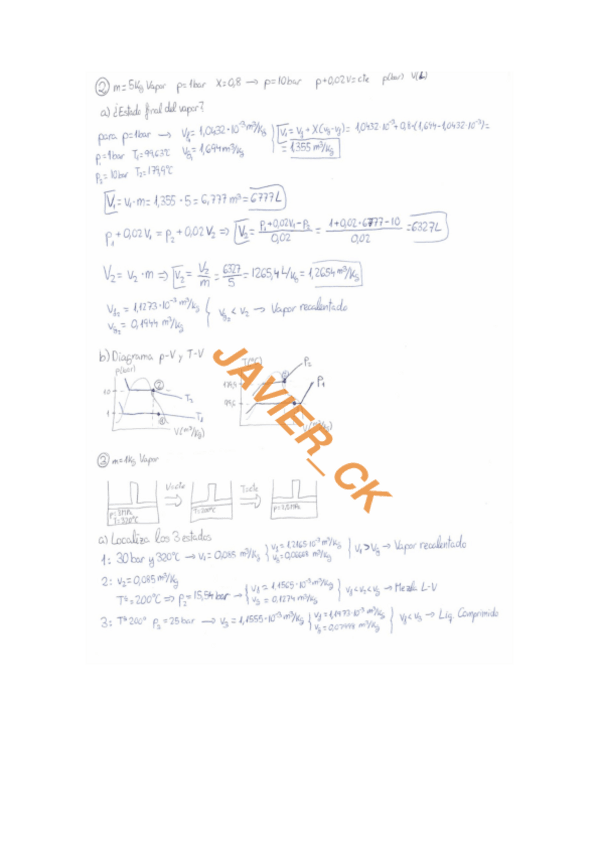 ② m=5Kg Vapor p=1bar X=0,8 → p=10bar p+0,02V=cte p(bar) V(L)
a) ¿Estado final del vapor?
para p=1bar → Vf1=1,0432·10⁻³m³/Kg Vg1=1,694m³/Kg } V1=Vf+X(Vg-Vf)=1,0432·10⁻³+0,8·(1,694-1,0432·10⁻³)=
p1=1bar T1=99,63ºC =1,355 m³/Kg
P2=10bar T2=179,9ºC
V1=V1·m=1,355·5=6,777m³=6777L
p1+0,02V1=p2+0,02V2 ⇒ V2=(P1+0,02V1-P2)/0,02=(1+0,02·6777-10)/0,02=6327L
V2=V2·m ⇒ V2=V2/m=6327/5=1265,4L/Kg=1,2654m³/Kg
Vf2=1,1273·10⁻³m³/Kg
Vg2=0,1944m³/Kg } Vg2<V2 → Vapor recalentado
b) Diagrama p-V y T-V
p(bar) T(ºC)
10 ② T2 179,9 P2
1 ① T1 99,6 P1
V(m³/Kg)
JAVIER_CK
③ m=1Kg Vapor
V=cte T=cte
T=320ºC T=200ºC
a) Localiza los 3 estados
1: 30bar y 320ºC → V1=0,085m³/Kg { Vf=1,2165·10⁻³m³/Kg Vg=0,06668m³/Kg } V1>Vg → Vapor recalentado
2: V2=0,085m³/Kg
Tª=200ºC ⇒ p2=15,54bar → { Vf=1,1565·10⁻³m³/Kg Vg=0,1274m³/Kg } Vf<V2<Vg → Mezcla L-V
3: Tª200º P3=25bar → V3=1,1555·10⁻³m³/Kg { Vf=1,1973·10⁻³m³/Kg Vg=0,07998m³/Kg } → Líq. Comprimido